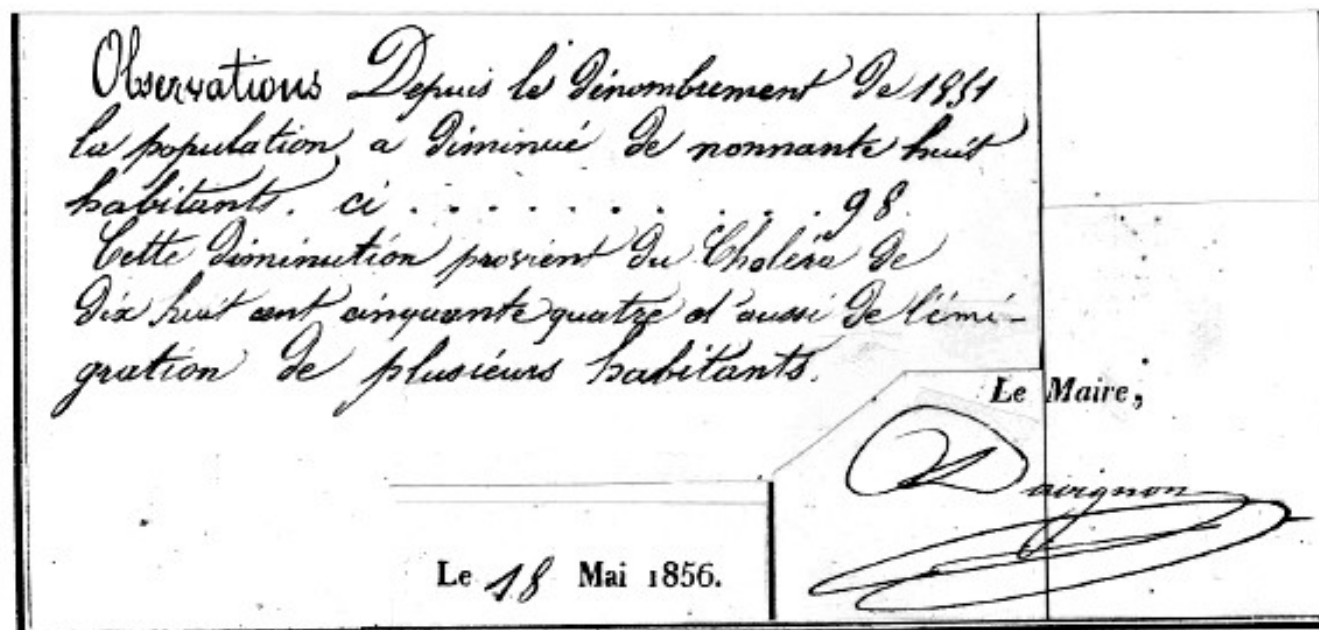 Observations Depuis le dénombrement de 1851
la population a diminué de nonnante huit
habitants. ci . . . . . . . . . . . 98
Cette diminution provient du Choléra de
dix huit cent cinquante quatre et aussi de l'émi-
gration de plusieurs habitants.
Le Maire,
Davignon
Le 18 Mai 1856.